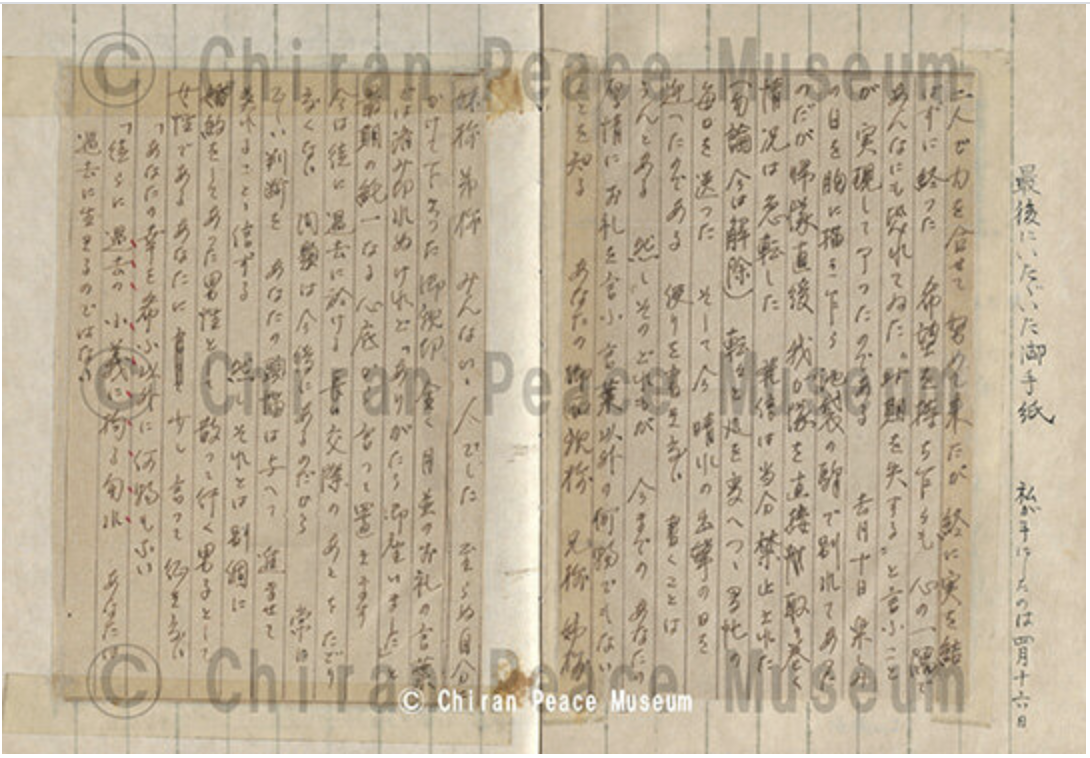 最後にいたゞいた御手紙　私が手にしたのは四月十六日
二人で力を合せて 努めて来たが 終に実を結
ばずに終った 希望を持ち乍らも 心の一隅で
あんなにも恐れてゐた“時期を失する”と言ふこと
が 実現して了ったのである 去月十日 楽しみ
の日を胸に描き乍ら 池袋の駅で別れてあった
のだが 帰隊直後 我が隊を直接取り巻く
情況は急転した 発信は当分禁止された
(勿論 今は解除) 転々と処を変へつゝ多忙の
毎日を送った そして今 晴れの出撃の日を
迎ったのである 便りを書き度い 書くことは
うんとある 然しそのどれもが 今までのあなたの
厚情にお礼を言ふ言葉以外の何物でもない
ことを知る あなたの御両親様 兄様 姉様
妹様 弟様 みんないゝ人でした 至らぬ自分に
かけて下さった御親切 全く月並のお礼の言葉
では済み切れぬけれど「ありがたう御座いました」と
最期の純一なる心底から言って置きます
今は徒に過去に於ける長い交際のあとをたどり
たくない 問題は今後にあるのだから 常に
正しい判断を あなたの頭脳は与へて 進ませて
呉れることゝ信ずる 然し それとは別個に
婚約をしてあった男性として 散って行く男子として
女性であるあなたに 少し言って征き度い
「あなたの幸を希ふ以外に何物もない
「徒らに過去の小義に拘る勿れ あなたは
過去に生きるのではない
© Chiran Peace Museum
© Chiran Peace Museum
© Chiran Peace Museum
© Chiran Peace Museum